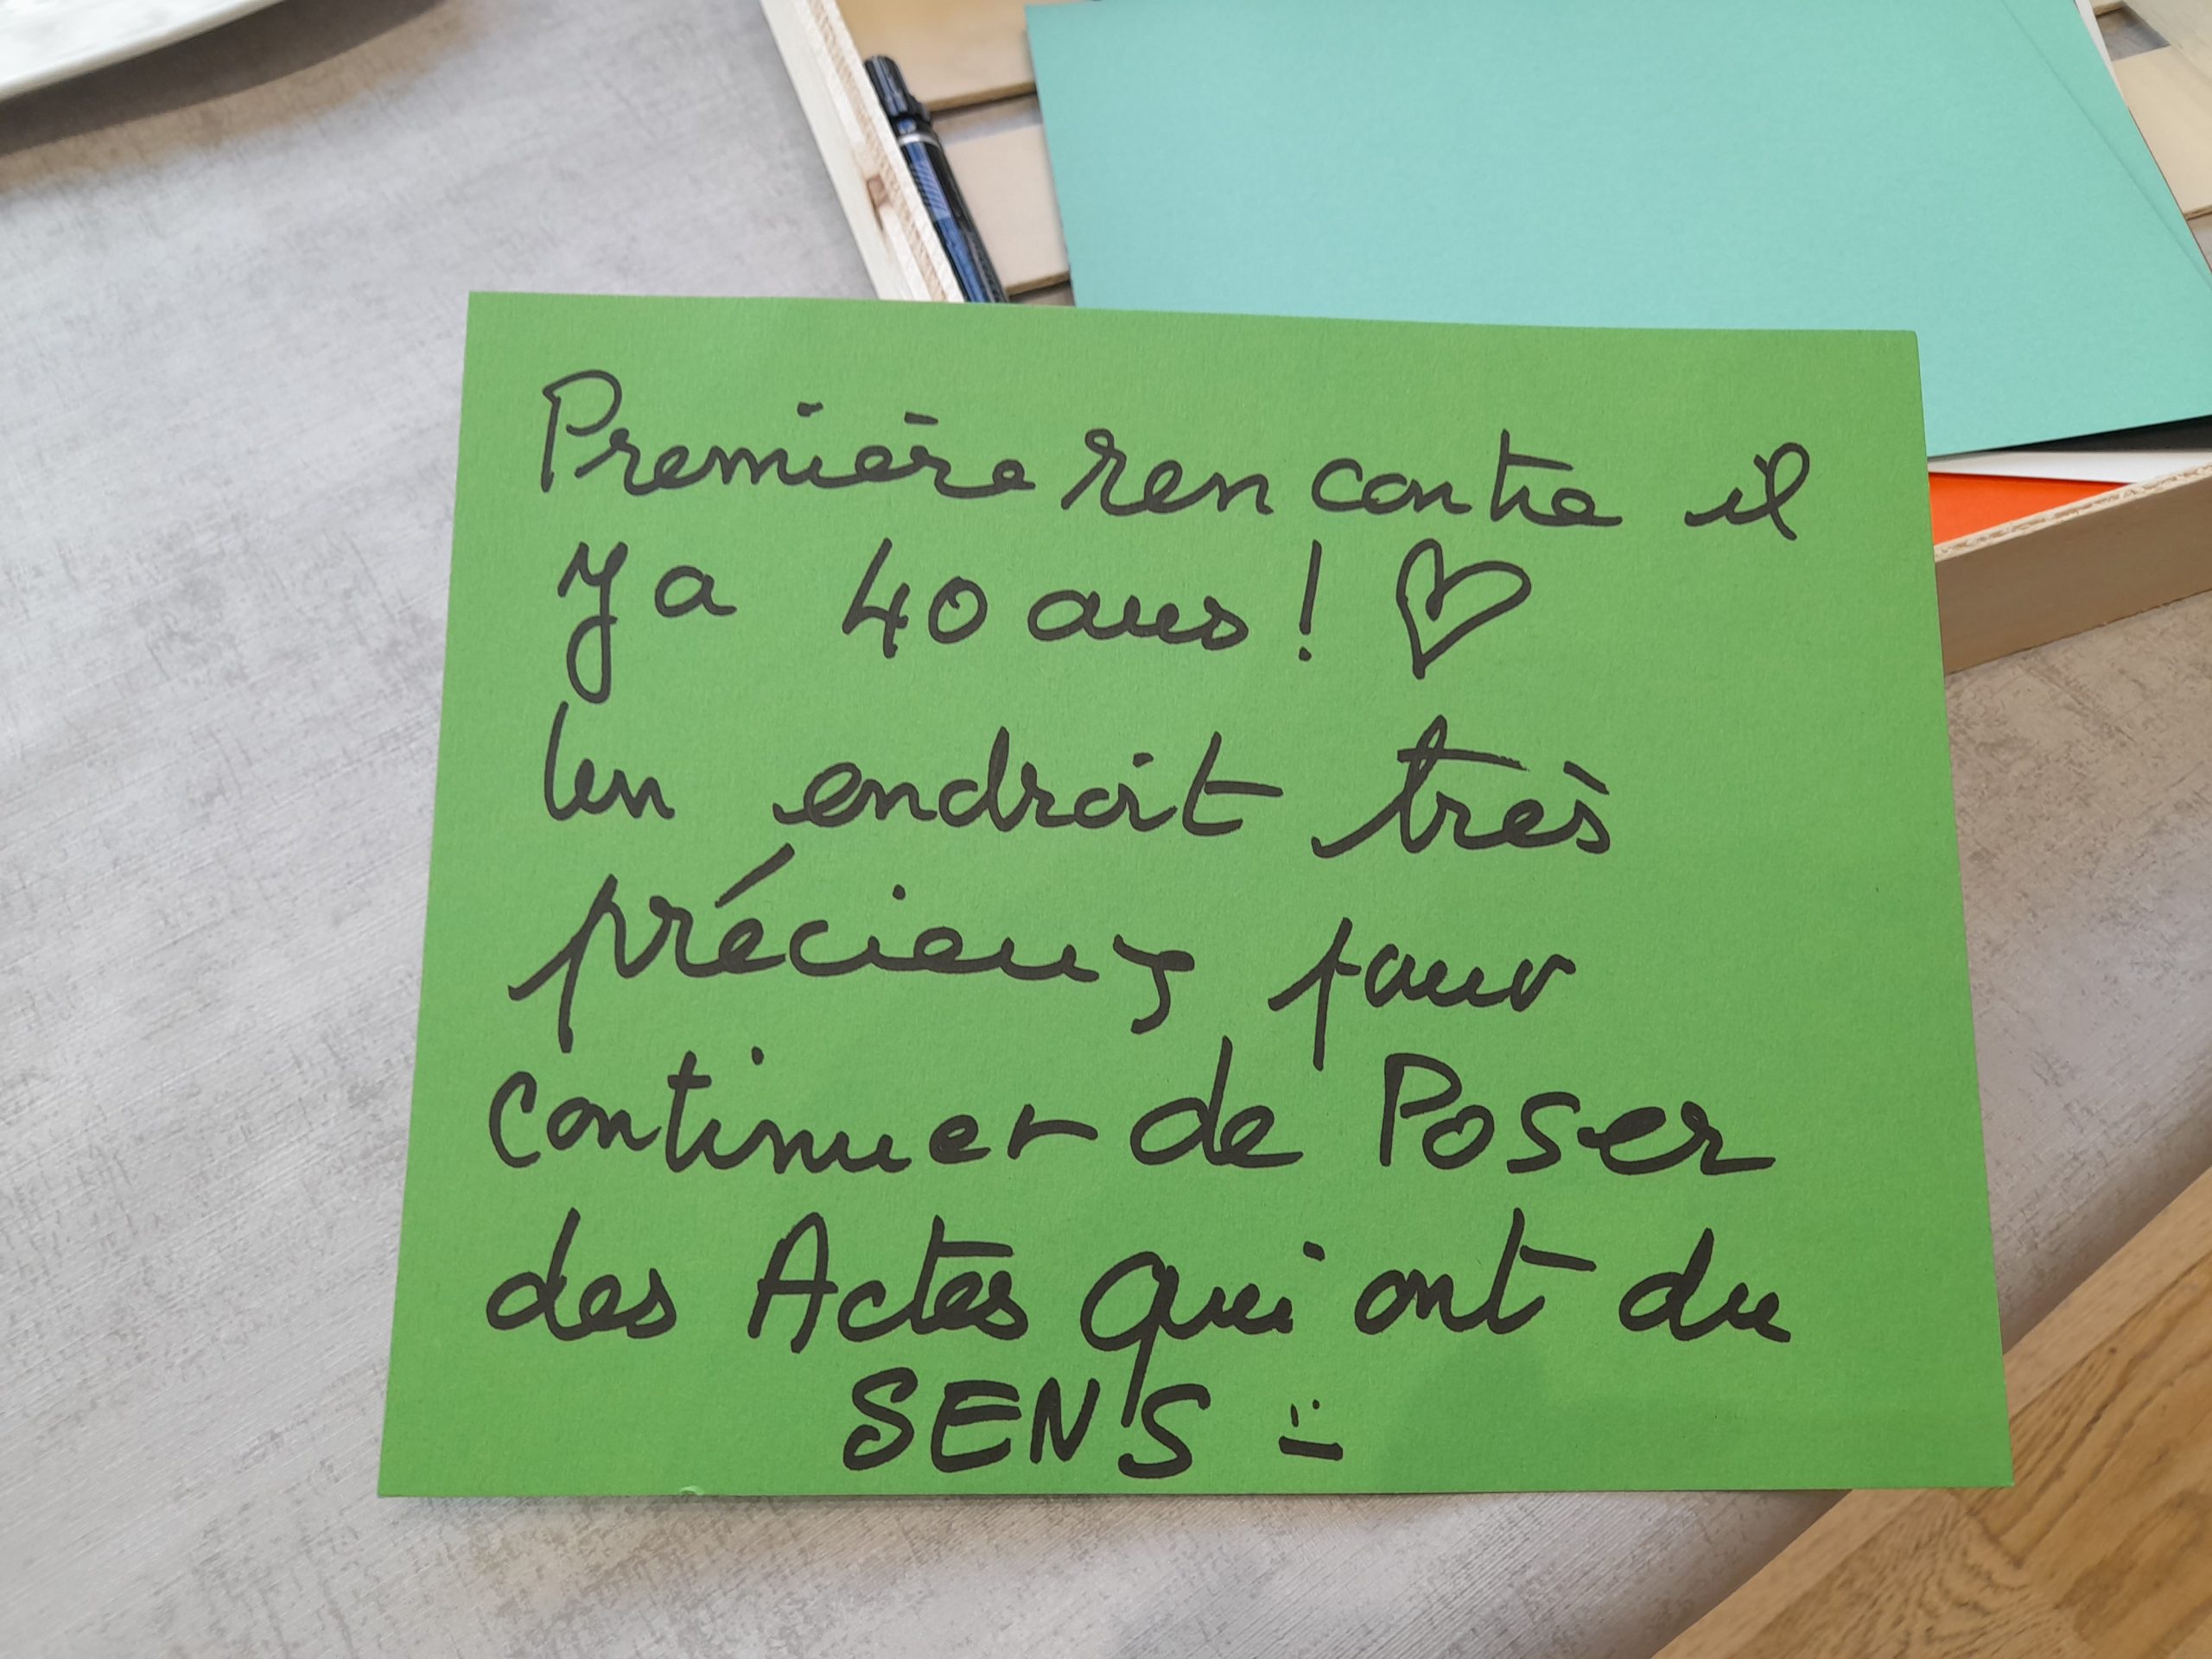 Première rencontre il
y a 40 ans ! ♡
Un endroit très
précieux pour
continuer de Poser
des Actes qui ont du
SENS